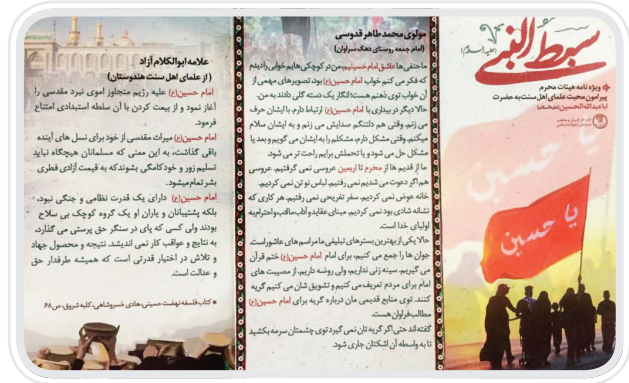 سبط النبی
(علیه السلام)
ویژه نامه هیئات محرم
پیرامون محبت علمای اهل سنت به حضرت
اباعبدالله الحسین (علیه السلام)
یا حسین
یا حسین
مولوی محمد طاهر قدوسی
(امام جمعه روستای دهک سراوان)
ما حنفی ها عاشق امام حسینیم، من در کوچکی هایم خوابی را دیدم
که فکر می کنم خواب امام حسین(ع) بود، تصویرهای مهمی از
آن خواب توی ذهنم هست؛ انگار یک دسته گلی دادند به من.
حالا دیگر در بیداری با امام حسین(ع) ارتباط دارم. با ایشان حرف
می زنم. وقتی هم دلتنگم صدایش می زنم و به ایشان سلام
میکنم. وقتی مشکل دارم، مشکلم را به ایشان می گویم و بعد یا
مشکل حل می شود و یا تحملش برایم راحت تر می شود.
ما از قدیم ها از محرم تا اربعین عروسی نمی گرفتیم. عروسی
هم اگر دعوت می شدیم نمی رفتیم. لباس نو تن نمی کردیم.
خانه عوض نمی کردیم. سفر تفریحی نمی رفتیم. هر کاری که
نشانه شادی بود نمی کردیم. مبنای عقاید و آداب ما قلب و احترام به
اولیای خدا است.
حالا یکی از بهترین بسترهای تبلیغی ما مراسم های عاشوراست.
جوان ها را جمع می کنیم، برای امام حسین(ع) ختم قرآن
می گیریم. سینه زنی نداریم، ولی روضه داریم. از مصیبت های
امام برای مردم تعریف می کنیم و تشویق شان می کنیم گریه
کنند. توی منابع قدیمی مان درباره گریه برای امام حسین(ع)
مطالب فراوان هست.
گفته اند حتی اگر گریه تان نمی گیرد توی چشمتان سرمه بکشید
تا به واسطه آن اشکتان جاری شود.
علامه ابوالکلام آزاد
( از علمای اهل سنت هندوستان)
امام حسین(ع) علیه رژیم متجاوز اموی نبرد مقدسی را
آغاز نمود و از بیعت کردن با آن سلطه استبدادی امتناع
فرمود.
امام حسین(ع) میراث مقدسی از خود برای نسل های آینده
باقی گذاشت، به این معنی که مسلمانان هیچگاه نباید
تسلیم زور و خودکامگی بشوند که به قیمت آزادی فطری
بشر تمام میشود.
امام حسین(ع) دارای یک قدرت نظامی و جنگی نبود،
بلکه پشتیبانان و یاران او یک گروه کوچک بی سلاح
بودند ولی کسی که پای در سنگر حق پرستی می گذارد،
به نتایج و عواقب کار نمی اندیشد. نتیجه و محصول جهاد
و تلاش در اختیار قدرتی است که همیشه طرفدار حق
و عدالت است.
* کتاب فلسفه نهضت حسینی، هادی خسروشاهی، کلبه شروق، ص ۶۸